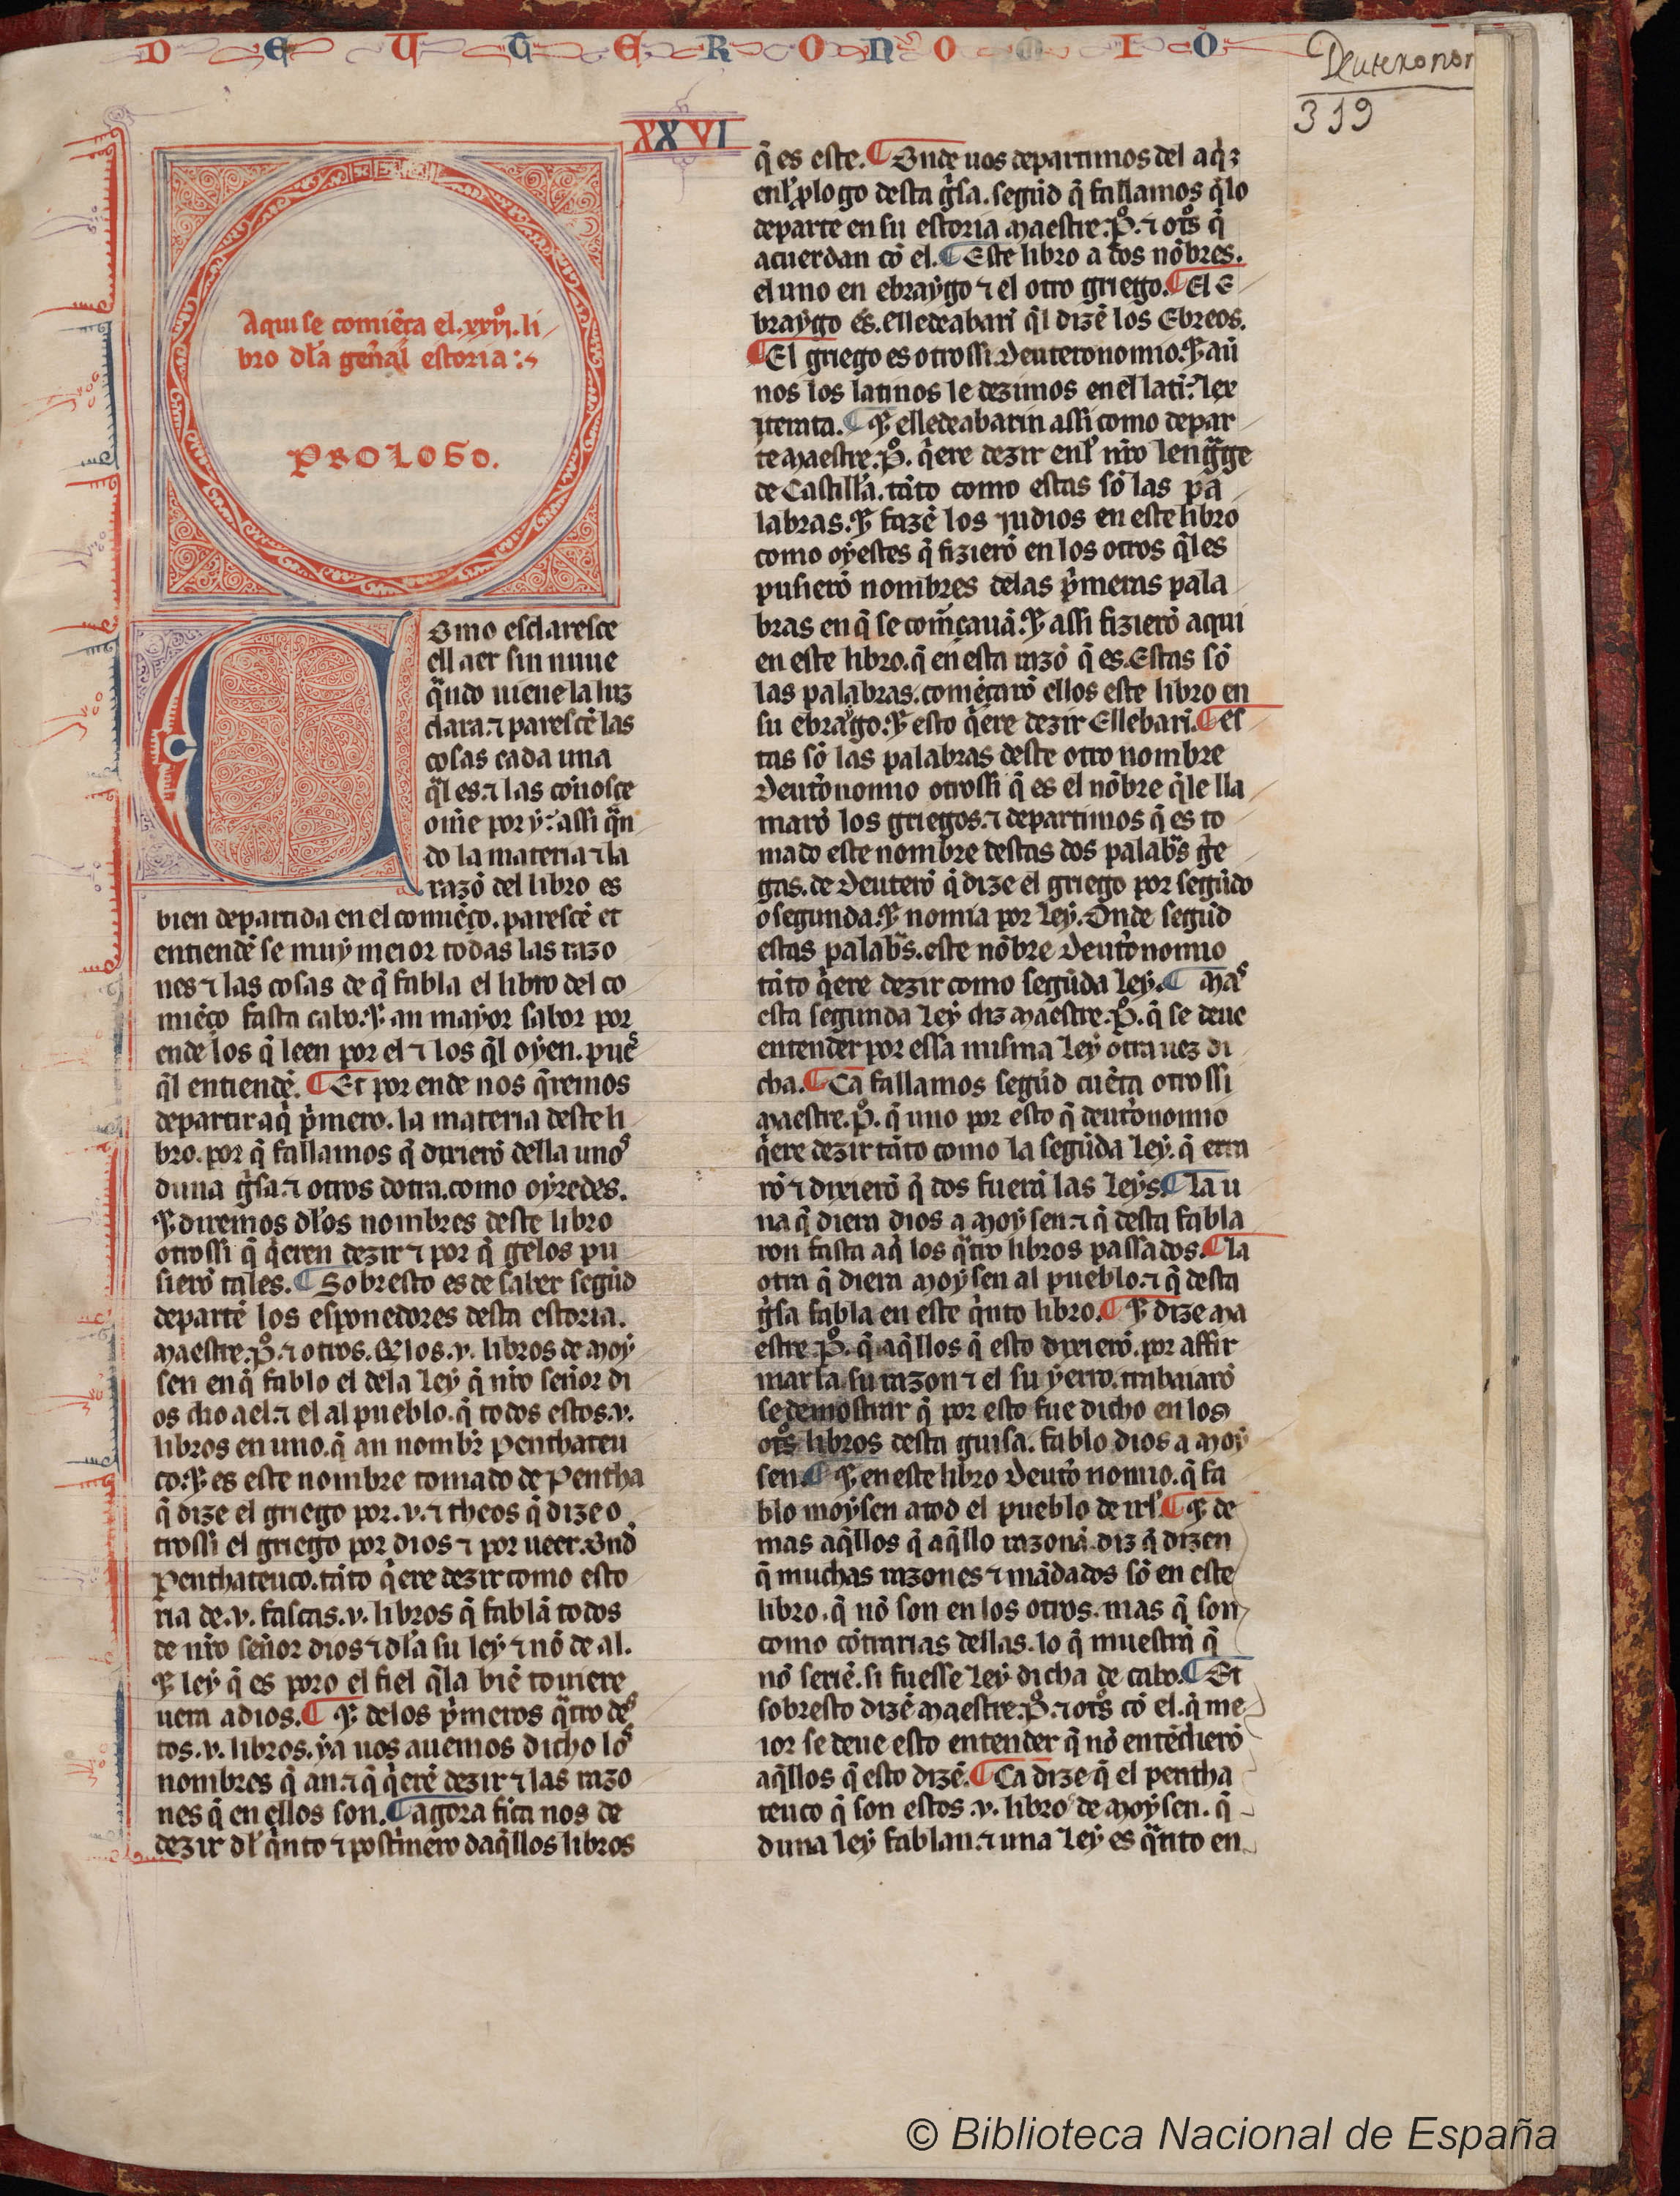 DEUTERONOMIO
Deuteronom
319
XXVI
Aqui se comiẽça el .xxvjº. li
bro dl̃a gen̾al estoria :
PROLOGO.
Como esclaresce
ell aer sin nuue
q̃ndo uiene la luz
clara. ⁊ parescẽ las
cosas cada una
q̃l es. ⁊ las conosce
om̃e por ý: assi q̃n
do la materia ⁊ la
razõ del libro es
bien departida en el comiẽço. parescẽ et
entiendẽ se muy meior todas las razo
nes ⁊ las cosas de q̃ fabla el libro del co
miẽço fasta cabo: ⁊ an mayor sabor por
ende los q̃ leen por el ⁊ los q̃l oyen. pues
q̃l entiendẽ. ¶ Et por ende nos q̃remos
departir aq̃ p̃mero. la materia deste li
bro. por q̃ fallamos q̃ dixierõ della unos
duna g̃sa. ⁊ otros dotra. como oyredes.
⁊ diremos dl̃os nombres deste libro
otrossi q̃ q̃eren dezir ⁊ por q̃ gelos pu
sierõ tales. ¶ Sobresto es de saber segũd
departẽ los esponedores desta estoria.
maestre .Pº. ⁊ otros. q̃ los .v. libros de moy
sen en q̃ fablo el dela ley q̃ nr̃o señor di
os dio a el. ⁊ el al pueblo. q̃ todos estos .v.
libros en uno. q̃ an nombr̃ penthateu
co: ⁊ es este nombre tomado de pentha
q̃ dize el griego por .v. ⁊ theos q̃ dize o
trossi el griego por dios ⁊ por ueer. Ond̃
penthateuco. tãto q̃ere dezir como esto
ria de .v. fascas .v. libros q̃ fablã todos
de nr̃o señor dios ⁊ dl̃a su ley ⁊ nõ de al.
⁊ ley q̃ es poro el fiel q̃ la biẽ touiere
uera a dios. ¶ ⁊ delos p̃meros q̃tro des
tos .v. libros. ya uos auemos dicho los
nombres q̃ an. ⁊ q̃ q̃erẽ dezir ⁊ las razo
nes q̃ en ellos son. ¶ agora finca nos de
dezir dl̃ q̃nto ⁊ post̃mero daq̃llos libros
q̃ es este. ¶ Onde uos departimos del aq̃
enl̃ p̃logo desta g̃sa. segũd q̃ fallamos q̃ lo
departe en su estoria maestre .Pº. ⁊ ot̃os q̃
acuerdan cõ el. ¶ Este libro a dos nõbres.
el uno en ebraygo ⁊ el otro griego. ¶ El e
braygo es. elledeabari q̃l dizẽ los Ebreos.
¶ El griego es otrossi. Deuteronomio. ⁊ aũ
nos los latinos le dezimos en el latĩ: lex
iterata. ¶ ⁊ elledeabarin assi como depar
te maestre .Pº. q̃ere dezir enl̃ nr̃o leng̃ge
de Castilla. tãto como estas sõ las pa
labras. ⁊ fazẽ los judios en este libro
como oyestes q̃ fizierõ en los otros q̃ les
pusierõ nombres delas p̃meras pala
bras en q̃ se com̃çauã. ⁊ assi fizierõ aqui
en este libro. q̃ en esta razõ q̃ es. Estas sõ
las palabras. comẽçarõ ellos este libro en
su ebraygo. ⁊ esto q̃ere dezir Ellebari. ¶ es
tas sõ las palabras deste otro nombre
deut̃onomio otrossi q̃ es el nõbre q̃ le lla
marõ los griegos. ⁊ departimos q̃ es to
mado este nombre destas dos palab̃s g̃e
gas. de Deuterõ q̃ dize el griego por segũdo
o segunda. ⁊ nomia por ley. Onde segũd
estas palab̃s. este nõbre deut̃onomio
tãto q̃ere dezir como segũda ley. ¶ Mas
esta segunda ley diz maestre .Pº. q̃ se deue
entender por essa misma ley otra uez di
cha. ¶ Ca fallamos segũd cuẽta otrossi
maestre .Pº. q̃ uno por esto q̃ deut̃onomio
q̃ere dezir tãto como la segũda ley. q̃ erra
rõ ⁊ dixierõ q̃ dos fuerã las leys. ¶ La u
na q̃ diera dios a moysen. ⁊ q̃ desta fabla
ron fasta aq̃ los q̃tro libros passados. ¶ La
otra q̃ diera moysen al pueblo. ⁊ q̃ desta
g̃sa fabla en este q̃nto libro. ¶ ⁊ dize ma
estre .Pº. q̃ aq̃llos q̃ esto dixierõ. por affir
mar la su razon ⁊ el su yerro. trabaiarõ
se demostrar q̃ por esto fue dicho en los
ot̃os libros desta guisa. fablo dios a moy
sen. ¶ ⁊ en este libro deut̃onomio. q̃ fa
blo moysen a tod el pueblo de irl̃. ¶ ⁊ de
mas aq̃llos q̃ aq̃llo razonã. diz q̃ dizen
q̃ muchas razones ⁊ mãdados sõ en este
libro. q̃ nõ son en los otros. mas q̃ son
como cõtrarias dellas. lo q̃ muestrã q̃
nõ seriẽ. si fuesse ley dicha de cabo. ¶ Et
sobresto dizẽ maestre .Pº. ⁊ ot̃os cõ el. q̃ me
ior se deue esto entender q̃ nõ entẽdierõ
aq̃llos q̃ esto dizẽ. ¶ Ca dize q̃ el pentha
teuco q̃ son estos .v. libros de moysen. q̃
duna ley fablan. ⁊ una ley es q̃nto en
© Biblioteca Nacional de España